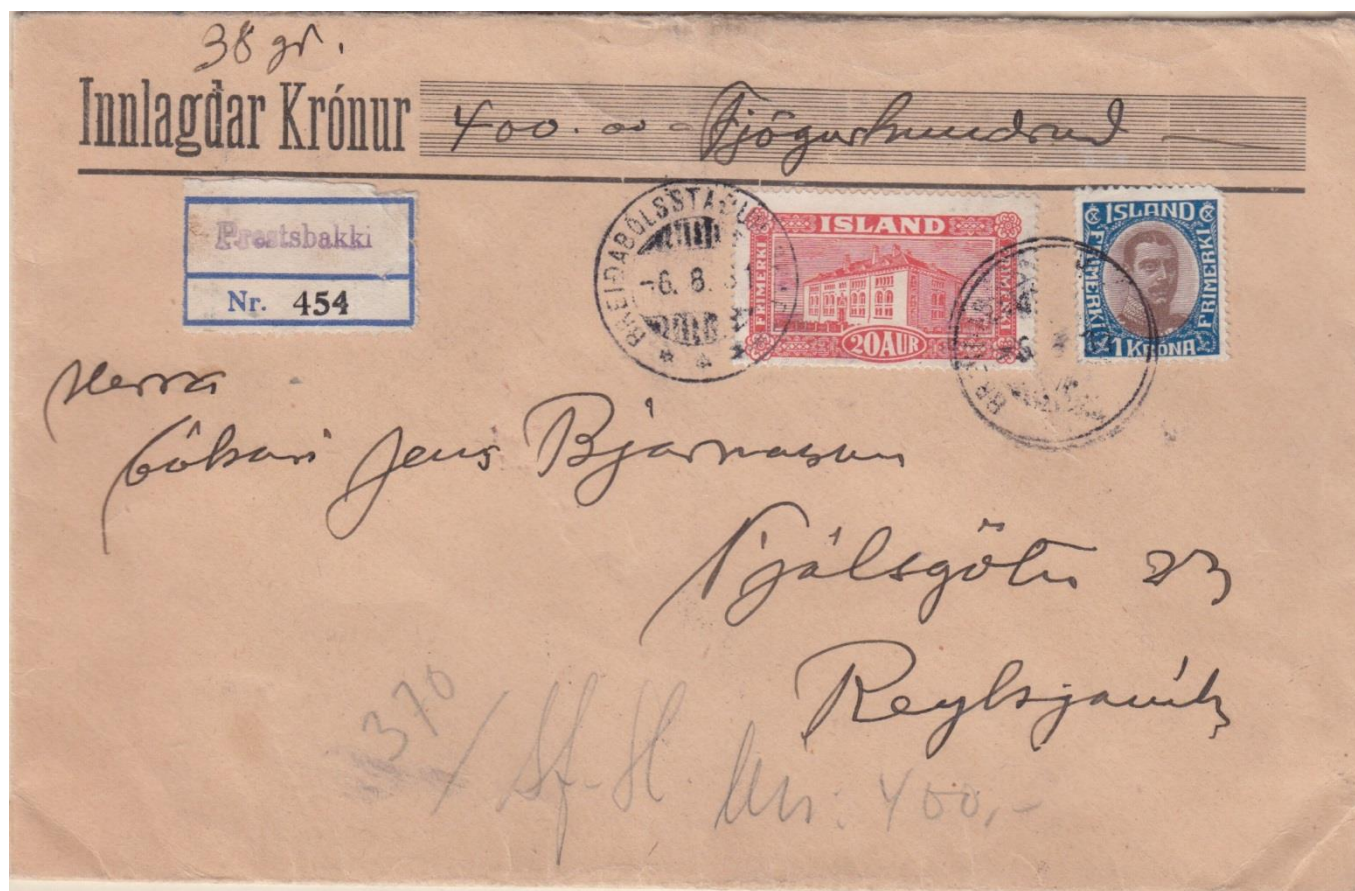 38 gr.
Innlagðar Krónur 400.00 - Fjögurhundruð —
Prestsbakki
Nr. 454
BREIÐABÓLSSTAÐUR
-6. 8. 3
ÍSLAND
FRÍMERKI
FRÍMERKI
20 AUR
ÍSLAND
FRÍMERKI
FRÍMERKI
1 KRÓNA
Herra
bókari Jens Bjarnason
Njálsgötu 23
Reykjavík
370
400,-